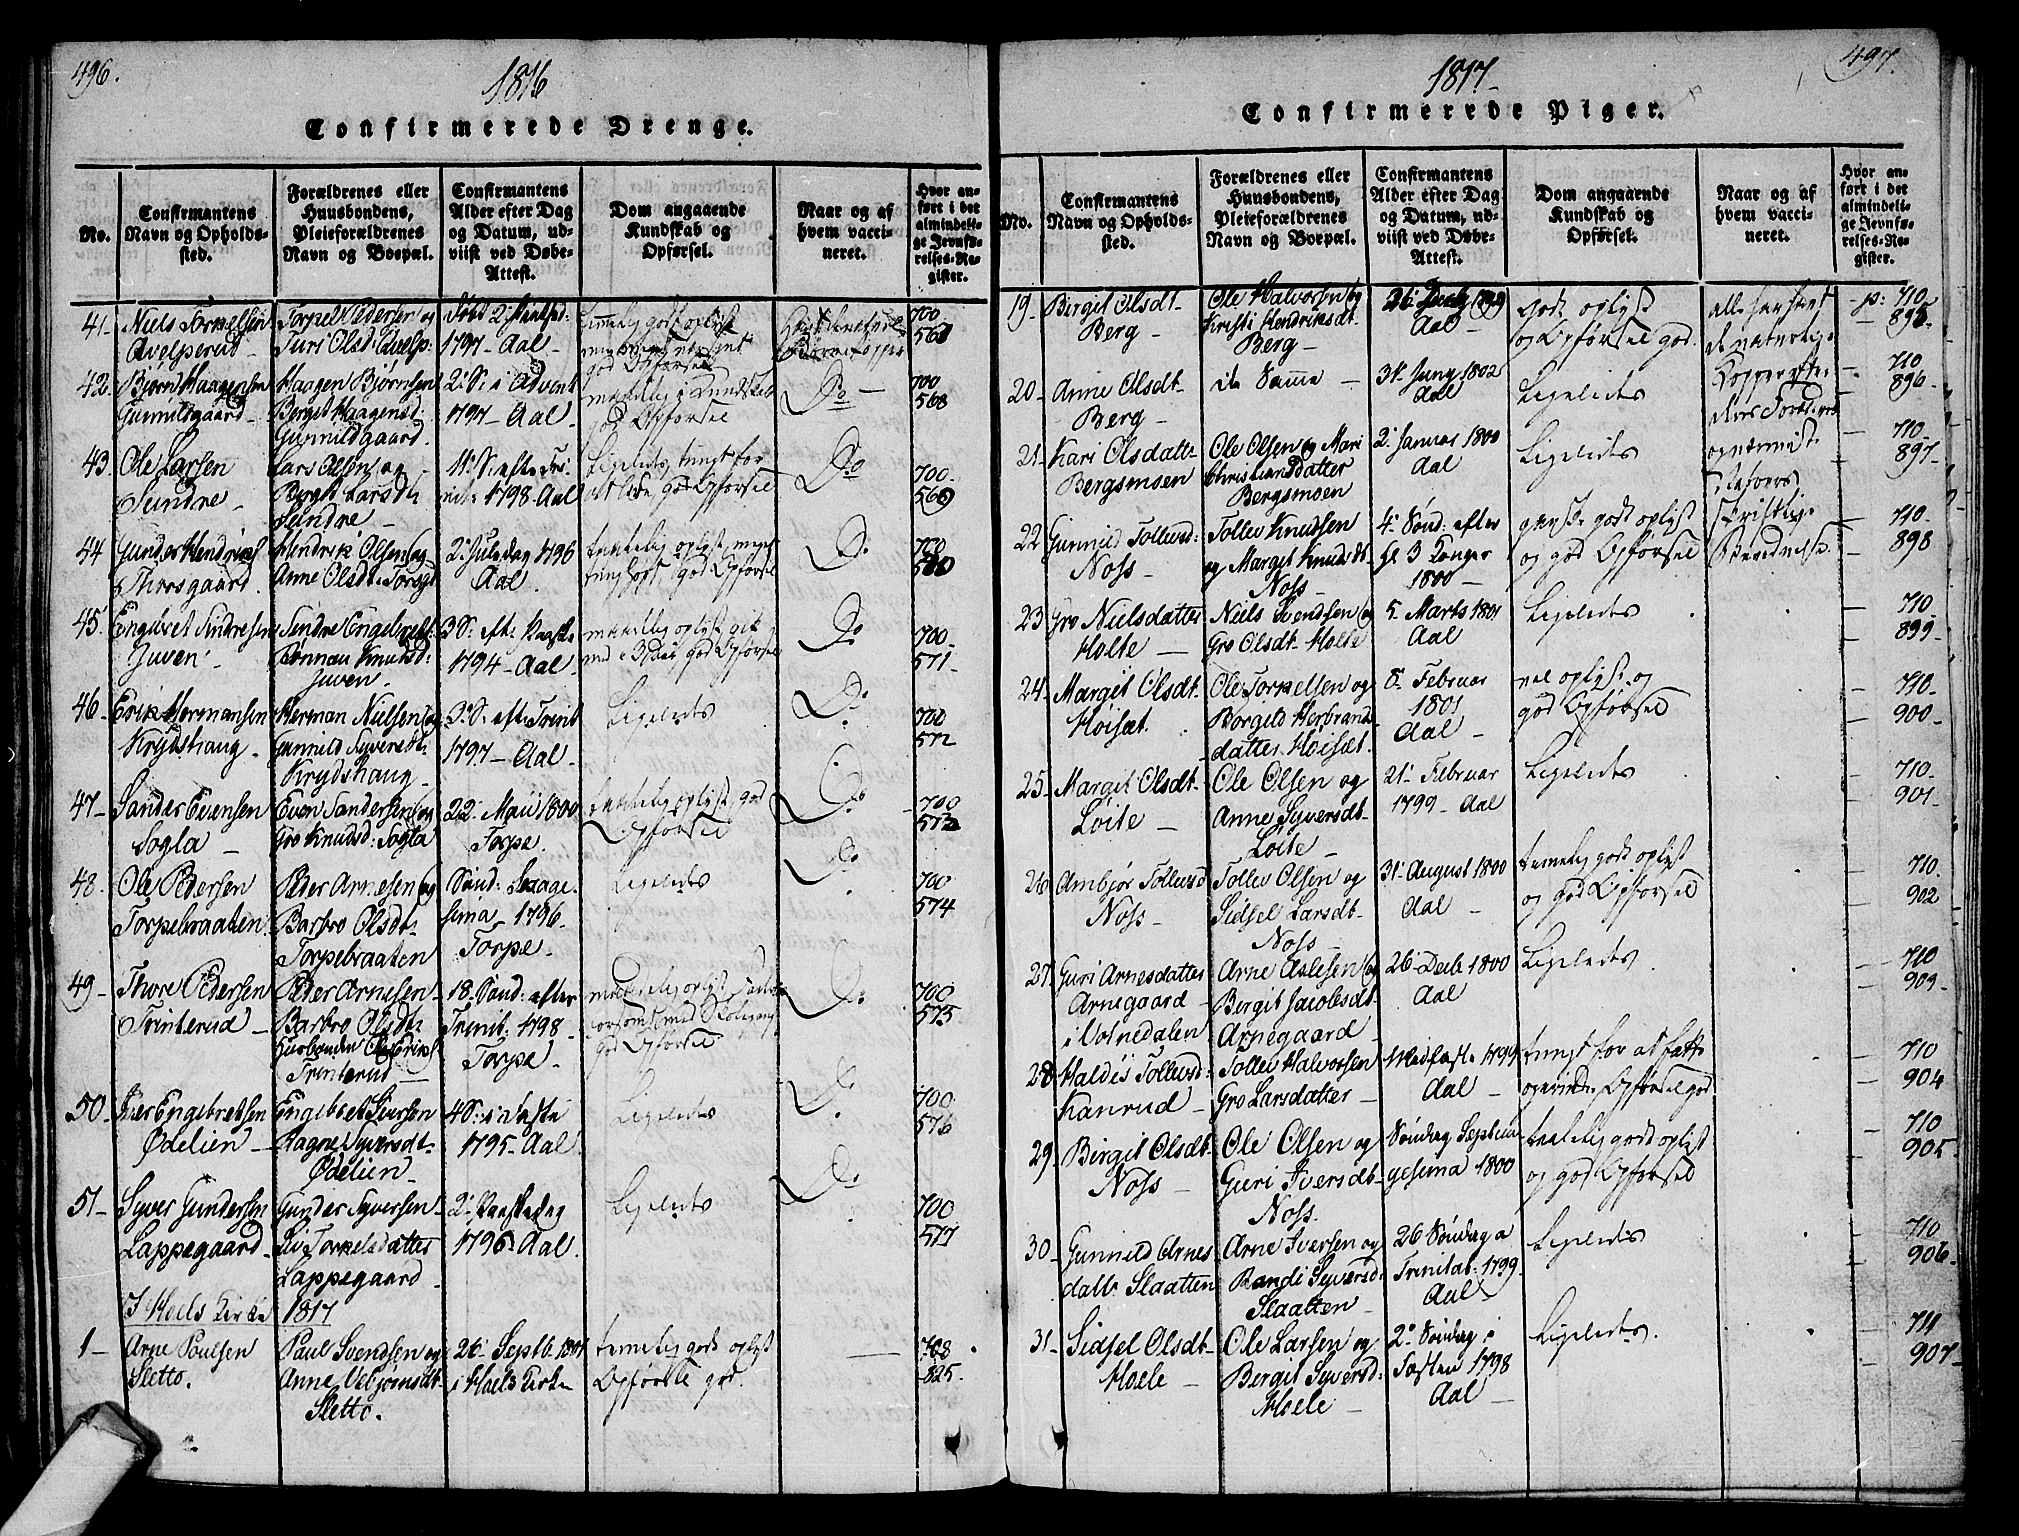 496.
1816
Confirmerede Drenge.
No.
Confirmantens
Navn og Opholds-
sted.
Forældrenes eller
Huusbondens,
Pleieforældrenes
Navn og Boepæl.
Confirmantens
Alder efter Dag
og Datum, ud-
viist ved Døbe-
Attest.
Dom angaaende
Kundskab og
Opførsel.
Naar og af
hvem vacci-
neret.
Hvor an-
ført i det
almindeli-
ge Jevnfø-
relses-Re-
gister.
41-
Niels Torkelsen
Torkel Pedersen og
Guri Olsd:
1797- Aal-
god Opførsel
700
42-
Bjørn Haagensen
Gunnildgaard-
Haagen Bjørnsen
Bergit Haagensd:
Gunnildgaard.
2: S: i Advent
1797- Aal.
god Opførsel
Do-
700
568
43-
Ole Larsen
Sundre-
Lars Olsen og
Birgit Larsdt:
Sundre-
11: S: efter Tri-
nit: 1798. Aal
Ligeledes, tungt for
god Opførsel
Do
700.
569
44
Gunder Hendriks:
Thorsgaard.
Hendrik Olsen og
Anne Olsdt:
2: Juledag 1796
Aal-
god Opførsel
Do
700
45.
Engebret Sindresen
Juven.
Sindre Engebretss:
Rønnau Knudsd:
Juven.
3 S: eft: Paaske
1794- Aal
god Opførsel
Do
700.
571.
46-
Erik Hermansen
Krydshaug-
Herman Nielsen og
Gunnild Syversdt:
Krydshaug-
3: S: eft: Trinit
1797- Aal.
Ligeledes
Do.
700
572
47-
Sander Evensen
Sogla-
Even Sandersen og
Gro Knudsd: Sogla
22. Maii 1800
Torpe.
god
Opførsel
Do
700
573
48.
Ole Pedersen
Torpebraaten.
Peder Arnesen og
Barbro Olsdt:
Torpebraaten
Sønd: Sexage-
sima- 1796.
Torpe-
Ligeledes
Do.
700
574
49-
Thore Pedersen
Trinterud-
Peder Arnesen-
Barbro Olsdt:
Trinterud-
18. Sønd: efter
Trinit: 1798-
Torpe-
god Opførsel
Do
700
575
50-
Iver Engebretsen
Ødelien-
Engebret Iversen
Ragne Syversdt-
Ødelien-
4 S: i Faste
1795- Aal
Ligeledes
Do.
700
576
51-
Syver Gundersen
Lappegaard-
Gunder Syversen-
Liv Torkelsdatter
Lappegaard-
2: Paaskedag
1796- Aal.
Ligeledes
Do
700
577
I Hoels Kirke 1817
1-
Arne Paulsen
Sletto.
Paul Svendsen og
Anne Vebjørnsdt
Sletto.
Septb: 1801
i Hoels Kirke
temelig godt oplyst
Opførsel god.
708
825.
497.
1817-
Confirmerede Piger.
No.
Confirmantens
Navn og Opholds-
sted.
Forældrenes eller
Huusbondens,
Pleieforældrenes
Navn og Boepæl.
Confirmantens
Alder efter Dag
og Datum, ud-
viist ved Døbe-
Attest.
Dom angaaende
Kundskab og
Opførsel.
Naar og af
hvem vacci-
neret.
Hvor an-
ført i det
almindeli-
ge Jevnfø-
relses-Re-
gister.
19-
Birgit Olsdt-
Berg-
Ole Halvorsen og
Kristi Hendriksdt-
Berg-
Aal-
godt oplyst
og Opførsel god.
alle havt
de naturlige
Kopper efter
p: 710
895
20-
Anne Olsdt-
Berg-
de Samme-
31. Juny 1802
Aal
Ligeledes
710
896.
21-
Kari Olsdatt-
Bergsmoen
Ole Olsen og Mari
Christiansdatter
Bergsmoen
2. Januar 1800
Aal
Ligeledes
710.
897.
22
Gunnild Tollevsd:
Noss-
Tollev Knudsen
og Margit Knudsdt
Noss-
4. Sønd: efter
hl. 3 Konger
1800-
godt oplyst
og god Opførsel
skriftlige
710.
898
23
Gro Nielsdatter
Holte-
Niels Svendsen og
Gro Olsdt- Holte
5. Marts 1801
Aal
Ligeledes
710-
899-
24-
Margit Olsdt.
Hoisæt.
Ole Torkelsen og
Borgild Herbrands
datter. Hoisæt.
8. Februar
1801
Aal-
vel oplyst og
god Opførsel
710-
900-
25-
Margit Olsdt.
Løite-
Ole Olsen og
Anne Syversdt-
Løite-
21. Februar
1799- Aal
Ligeledes
710-
901.
26
Ambjør Tollevsd
Noss-
Tollev Olsen og
Sidsel Larsdt-
Noss-
31. August 1800
Aal-
temelig godt oplyst
og god Opførsel
710.
902
27-
Guri Arnesdatter
Arnegaard-
i Votnedalen
Arne Aslesen og
Birgit Jacobsdt-
Arnegaard-
26 Decb. 1800
Aal
Ligeledes
710
903.
28
Haldis Tollevsd:
Kanrud-
Tollev Halvorsen
Gro Larsdatter-
Midfaste 1799
Aal-
tungt for at fatte
Opførsel god
710
904
29-
Birgit Olsdt.
Noss-
Ole Olsen og
Guri Iversdt-
Noss.
Søndag Septua
gesima 1800
godt oplyst
og god Opførsel
710
905
30-
Gunnild Arnes
datt. Slaatten
Arne Iversen og
Randi Syversd:
Slaatten-
26 Søndag a
Trinitat: 1799-
Aal-
Ligeledes
710
906-
31-
Sidsel Olsdt-
Hoele-
Ole Larsen og
Birgit Syversd:
Hoele-
2. Søndag i
Fasten 1798
Aal-
Ligeledes.
711
907-